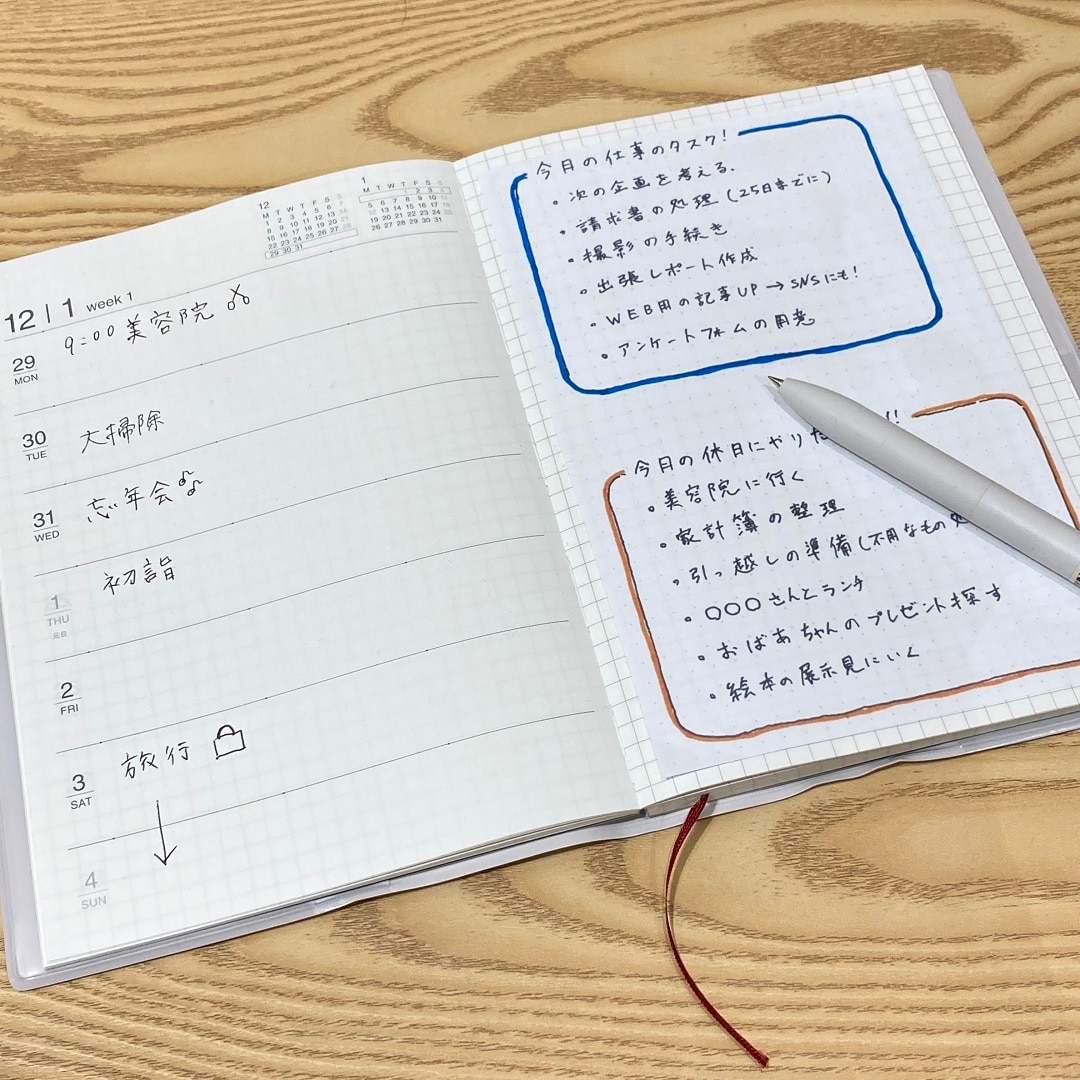 12 | 1 week 1
12
M T W T F S S
1 2 3 4 5 6 7
8 9 10 11 12 13 14
15 16 17 18 19 20 21
22 23 24 25 26 27 28
29 30 31
1
M T W T F S S
1 2 3 4
5 6 7 8 9 10 11
12 13 14 15 16 17 18
19 20 21 22 23 24 25
26 27 28 29 30 31
29 MON 9:00 美容院
30 TUE 大掃除
31 WED 忘年会
1 THU 元日 初詣
2 FRI
3 SAT 旅行
4 SUN
今月の仕事のタスク!
・次の企画を考える.
・請求書の処理(25日までに)
・撮影の手続き
・出張レポート作成
・WEB用の記事UP→SNSにも!
・アンケートフォームの用意
今月の休日にやりた
・美容院に行く
・家計簿の整理
・引っ越しの準備(不用なもの
・〇〇〇さんとランチ
・おばあちゃんのプレゼント探す
・絵本の展示見にいく